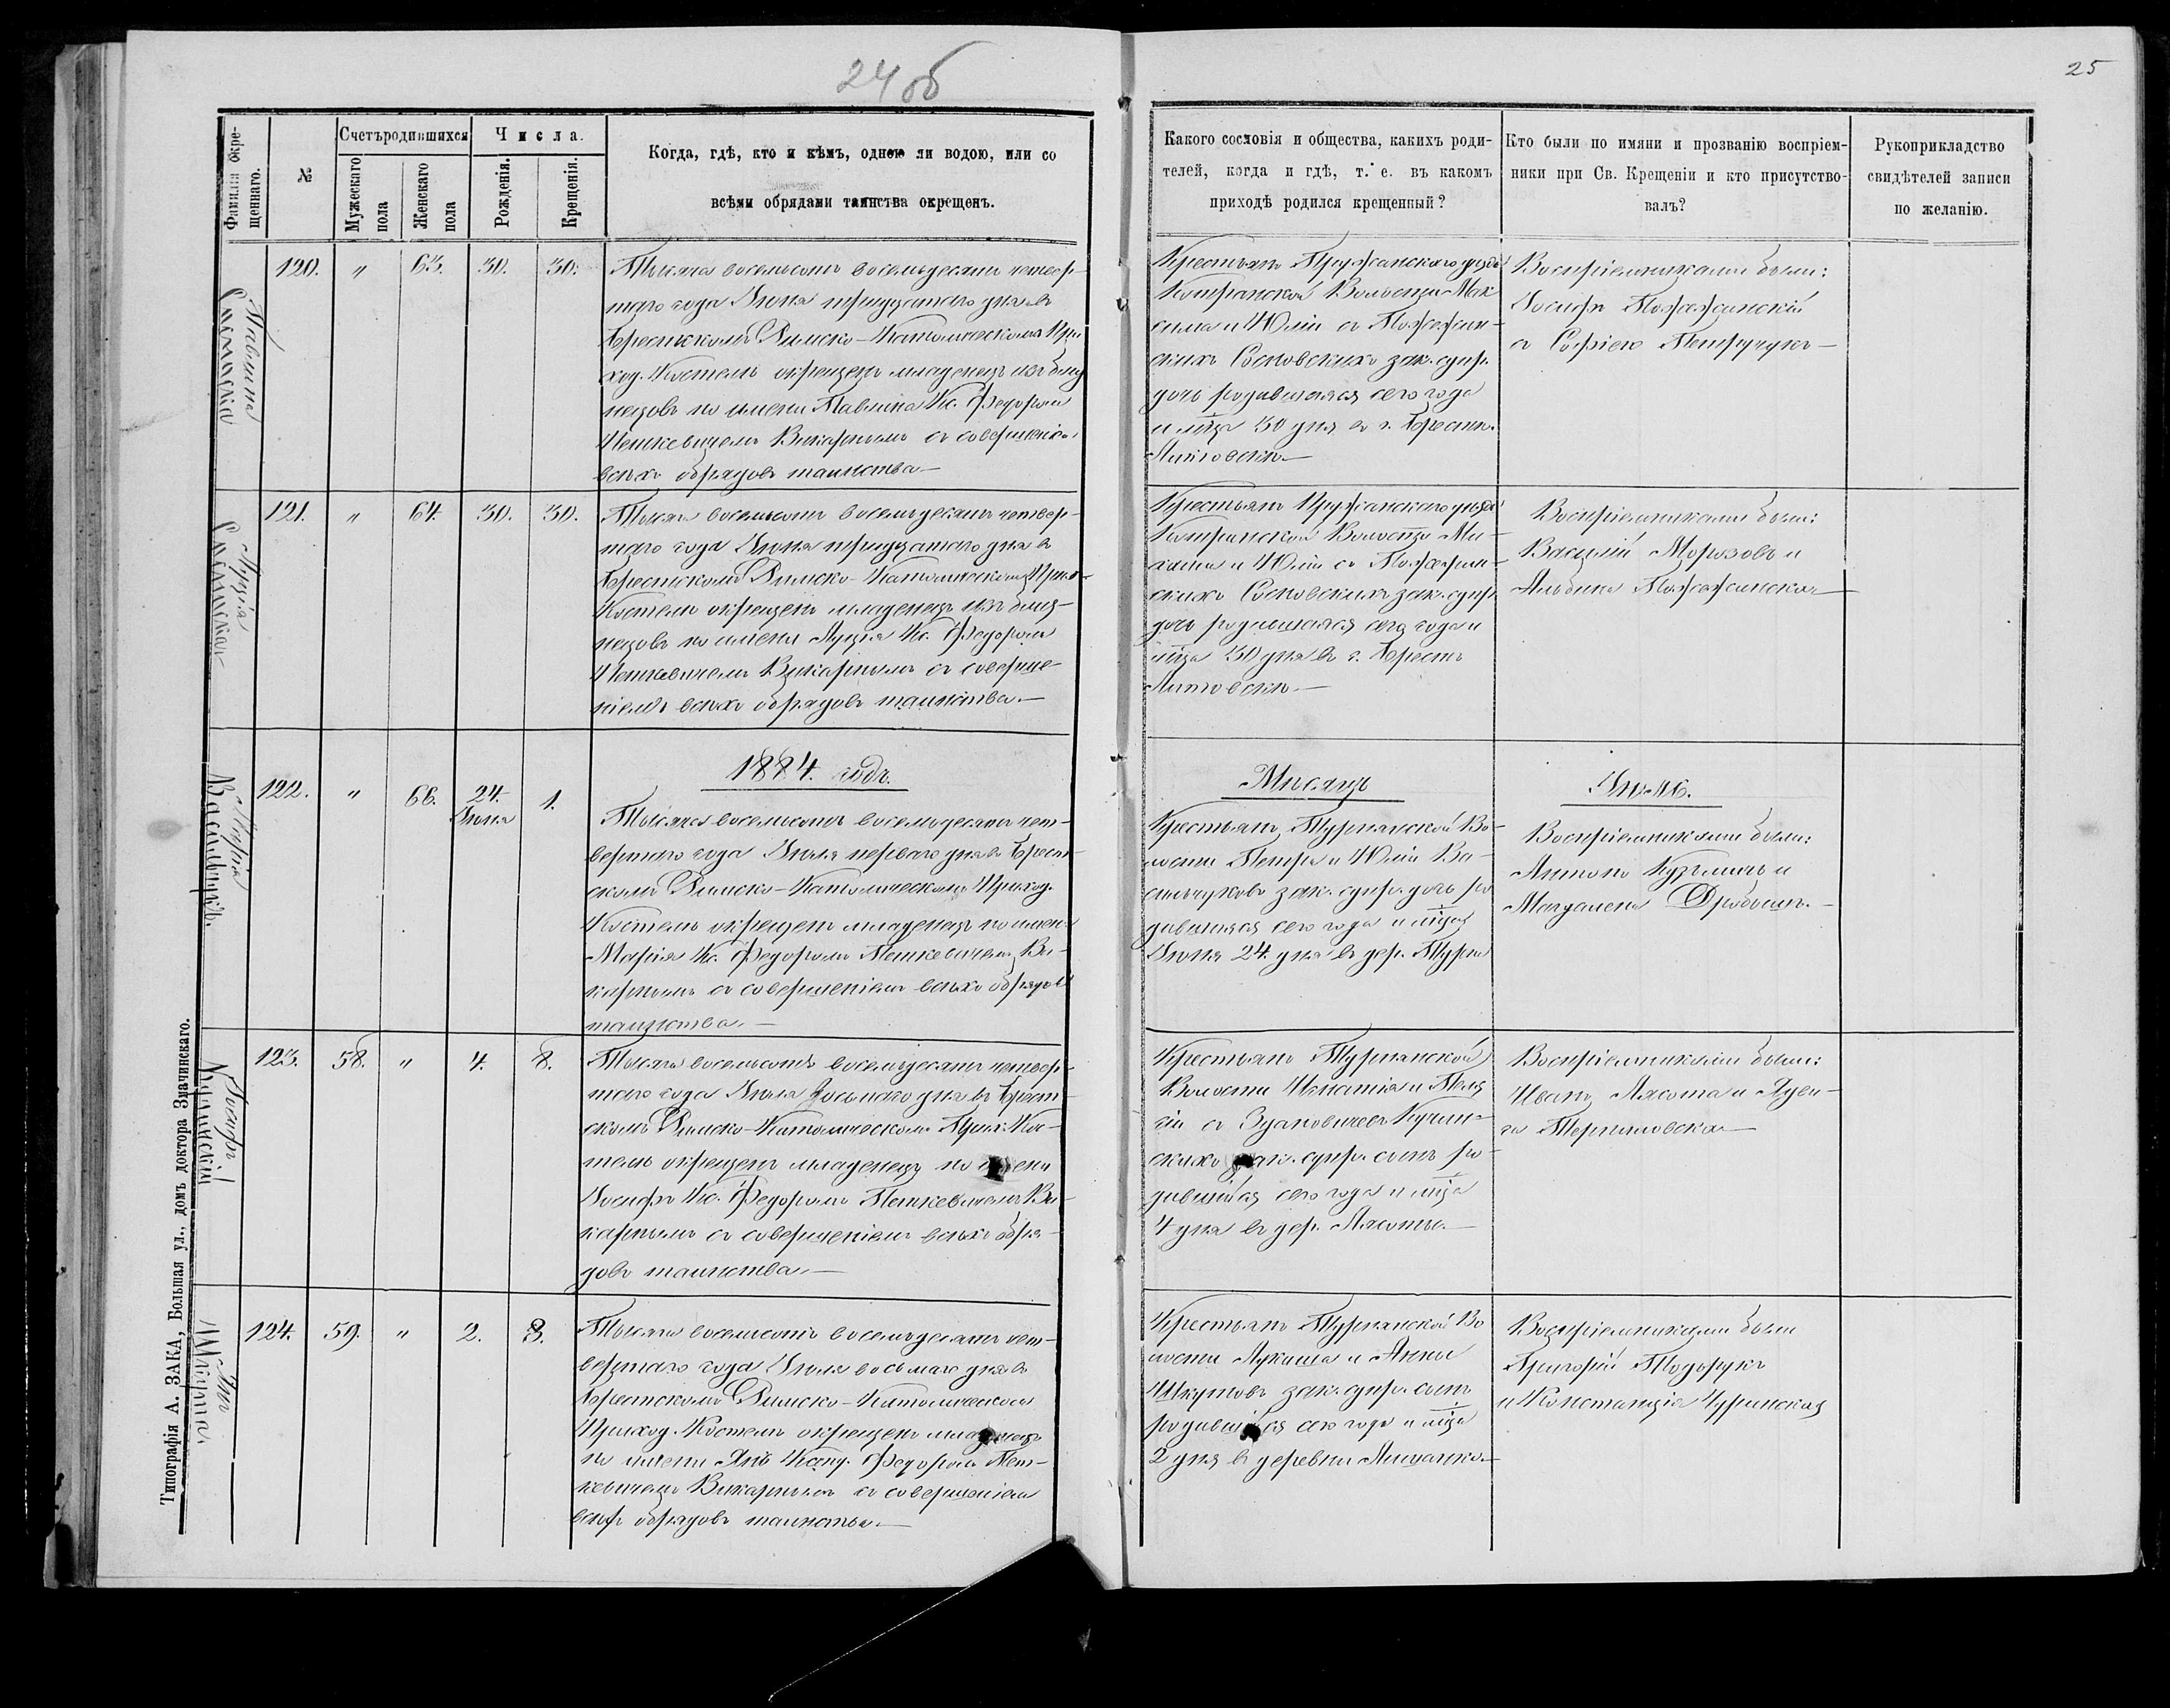 24 об
25
Фамилія окре-
щеннаго.
№
Счетъ родившихся
Мужескаго
пола
Женскаго
пола
Числа.
Рожденія.
Крещенія.
Когда, гдѣ, кто и кѣмъ, одною ли водою, или со
всѣми обрядами таинства окрещенъ.
Какого сословія и общества, какихъ роди-
телей, когда и гдѣ, т. е. въ какомъ
приходѣ родился крещенный?
Кто были по имяни и прозванію воспріем-
ники при Св. Крещеніи и кто присутство-
валъ?
Рукоприкладство
свидѣтелей записи
по желанію.
Павлина
120. " 63. 30. 30.
Тысяча восемьсотъ восемьдесятъ четвер-
таго года Іюня тридцатаго дня въ
Брестскомъ Римско-Католическомъ При
ход. Костелѣ окрещенъ младенецъ изъ близ
нецовъ по имени Павлина Кс. Федоромъ
Петкевичемъ Викарнымъ съ совершеніем
всѣхъ обрядовъ таинства—
Крестьянъ Пружанскаго уѣзда
Волости Мак
сима и Юліи съ Пожежин-
скихъ Сосновскихъ зак. супр.
дочь родившаяся сего года
и мца 30 дня въ г. Брестѣ-
Литовскѣ.—
Воспріемниками были:
Іосифъ Пожежинскій
съ Софіею Петручукъ—
Луція
121. " 64. 30. 30.
Тысяча восемьсотъ восемьдесятъ четвер-
таго года Іюня тридцатаго дня въ
Брестскомъ Римско-Католическомъ Прих-
Костелѣ окрещенъ младенецъ изъ близ-
нецовъ по имени Луція Кс. Федоромъ
Петкевичемъ Викарнымъ съ соверше-
ніемъ всѣхъ обрядовъ таинства.—
Крестьянъ Пружанскаго уѣзда
Волости Ма-
ксима и Юліи съ Пожежин-
скихъ Сосновскихъ зак. супр.
дочь родившаяся сего года и
мца 30 дня въ г. Брестѣ
Литовскѣ.—
Воспріемниками были:
Василій Морозовъ и
Альбина Пожежинская—
1884. годъ.
Мѣсяцъ
Іюль.
Марія
122. " 66. 24. 1.
Іюня
Тысяча восемьсотъ восемьдесятъ чет-
вертаго года Іюля перваго дня въ Брест-
скомъ Римско-Католическомъ Приход.
Костелѣ окрещенъ младенецъ по имени
Марія Кс. Федоромъ Петкевичемъ Ви-
карнымъ съ совершеніемъ всѣхъ обрядовъ
таинства.—
Крестьянъ Турнянской Во-
лости Петра и Юліи Ва-
сильчуковъ зак. супр. дочь ро
дившаяся сего года и мца
Іюня 24. дня въ дер. Турна
Воспріемниками были:
Антонъ Кузьмичъ и
Магдалена Дробошъ.—
Іосифъ
Кучинскій
123. 58. " 4. 8.
Тысяча восемьсотъ восемьдесятъ четвер-
таго года Іюля Восьмаго дня въ Брест-
скомъ Римско-Католическомъ Прих. Кос-
телѣ окрещенъ младенецъ по имени
Іосифъ Кс. Федоромъ Петкевичемъ Ви-
карнымъ съ совершеніемъ всѣхъ обря-
довъ таинства.—
Крестьянъ Турнянской
Волости Игнатія и Пела
гіи съ Здановичевъ Кучин-
скихъ зак. супр. сынъ ро-
дившійся сего года и мца
4 дня въ дер. Лясоты.—
Воспріемниками были:
Иванъ Лясота и Ядви-
га
Янъ
Шкурпа.
124. 59. " 2. 8.
Тысяча восемьсотъ восемьдесятъ чет-
вертаго года Іюля восьмаго дня въ
Брестскомъ Римско-Католическомъ
Приход. Костелѣ окрещенъ младенецъ
по имени Янъ Ксенд. Федоромъ Пет-
кевичемъ Викарнымъ съ совершеніемъ
всѣхъ обрядовъ таинства.—
Крестьянъ Турнянской Во
лости Лукаша и Анны
зак. супр. сынъ
родившійся сего года и мца
2 дня въ деревни
Воспріемниками были
Григорій Тодорукъ
и Констанція
Типографія А. ЗАКА, Большая ул., домъ доктора Значинскаго.